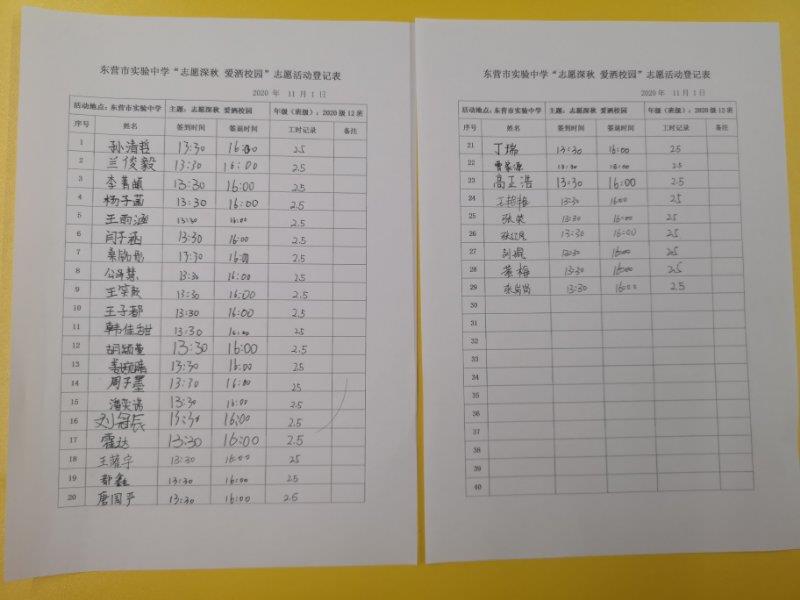 东营市实验中学“志愿深秋 爱洒校园”志愿活动登记表
2020 年 11 月 1 日
活动地点:东营市实验中学 主题:志愿深秋 爱洒校园 年级(班级):2020级12班
序号 姓名 签到时间 签退时间 工时记录 备注
1 孙清哲 13:30 16:00 2.5
2 兰俊毅 13:30 16:00 2.5
3 李 13:30 16:00 2.5
4 杨子菡 13:30 16:00 2.5
5 王雨涵 13:30 16:00 2.5
6 闫子涵 13:30 16:00 2.5
7 13:30 16:00 2.5
8 13:30 16:00 2.5
9 王 13:30 16:00 2.5
10 王子郡 13:30 16:00 2.5
11 韩佳甜 13:30 16:00 2.5
12 胡颖曼 13:30 16:00 2.5
13 13:30 16:00 25
14 周子墨 13:30 16:00 25
15 潘奕诺 13:30 16:00 2.5
16 刘冠辰 13:30 16:00 2.5
17 霍达 13:30 16:00 2.5
18 王 宇 13:30 16:00 25
19 鑫 13:30 16:00 2.5
20 唐国严 13:30 16:00 2.5
东营市实验中学“志愿深秋 爱洒校园”志愿活动登记表
2020 年 11 月 1 日
活动地点:东营市实验中学 主题:志愿深秋 爱洒校园 年级(班级):2020级12班
序号 姓名 签到时间 签退时间 工时记录 备注
21 丁瑞 13:30 16:00 25
22 曹 源 13:30 16:00 2.5
23 高正浩 13:30 16:00 2.5
24 王 13:30 16:00 2.5
25 张荣 13:30 16:00 25
26 张红民 13:30 16:00 25
27 刘 13:30 16:00 2.5
28 黄梅 13:30 16:00 2.5
29 张 13:30 16:00 2.5
30
31
32
33
34
35
36
37
38
39
40